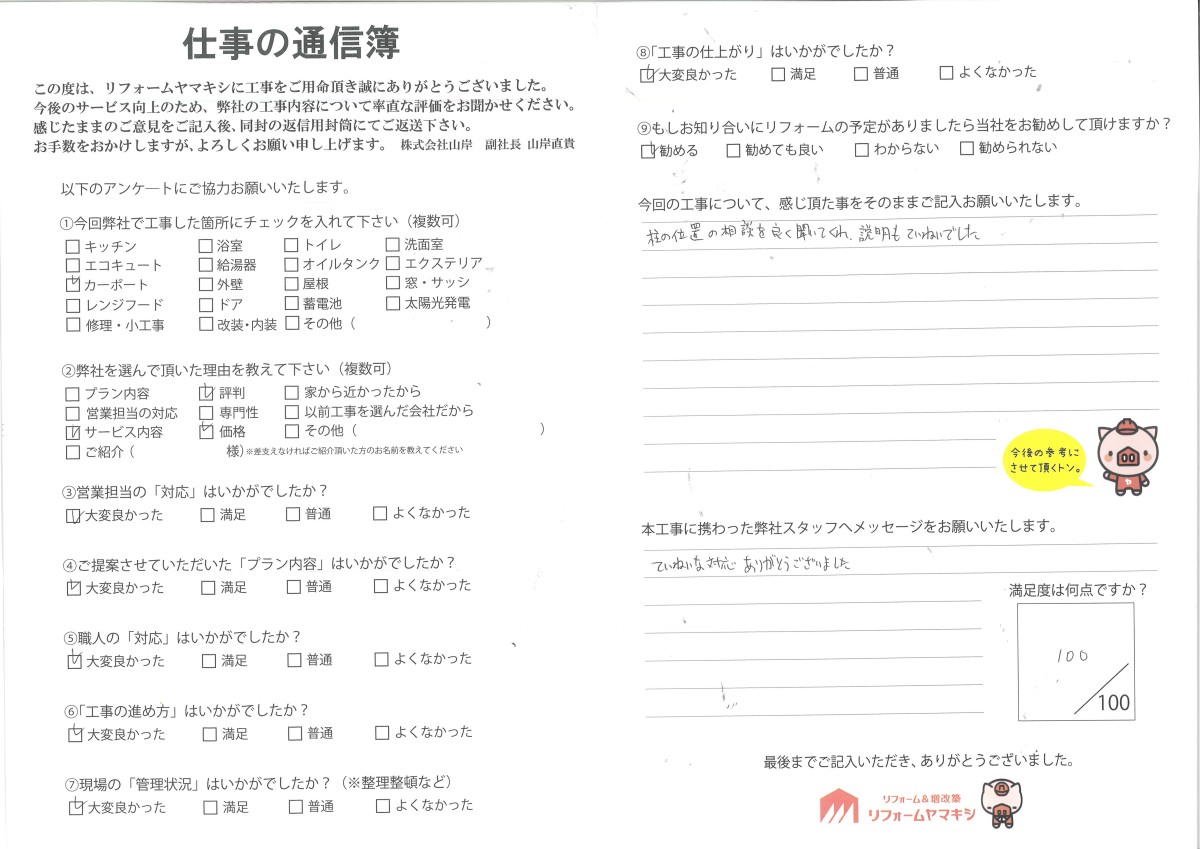 仕事の通信簿
この度は、リフォームヤマキシに工事をご用命頂き誠にありがとうございました。
今後のサービス向上のため、弊社の工事内容について率直な評価をお聞かせください。
感じたままのご意見をご記入後、同封の返信用封筒にてご返送下さい。
お手数をおかけしますが、よろしくお願い申し上げます。 株式会社山岸 副社長 山岸直貴
以下のアンケートにご協力お願いいたします。
①今回弊社で工事した箇所にチェックを入れて下さい（複数可）
□キッチン □浴室 □トイレ □洗面室
□エコキュート □給湯器 □オイルタンク □エクステリア
☑カーポート □外壁 □屋根 □窓・サッシ
□レンジフード □ドア □蓄電池 □太陽光発電
□修理・小工事 □改装・内装 □その他（ ）
②弊社を選んで頂いた理由を教えて下さい（複数可）
□プラン内容 ☑評判 □家から近かったから
□営業担当の対応 □専門性 □以前工事を選んだ会社だから
☑サービス内容 ☑価格 □その他（ ）
□ご紹介（ 様）※差支えなければご紹介頂いた方のお名前を教えてください
③営業担当の「対応」はいかがでしたか？
☑大変良かった □満足 □普通 □よくなかった
④ご提案させていただいた「プラン内容」はいかがでしたか？
☑大変良かった □満足 □普通 □よくなかった
⑤職人の「対応」はいかがでしたか？
☑大変良かった □満足 □普通 □よくなかった
⑥「工事の進め方」はいかがでしたか？
☑大変良かった □満足 □普通 □よくなかった
⑦現場の「管理状況」はいかがでしたか？（※整理整頓など）
☑大変良かった □満足 □普通 □よくなかった
⑧「工事の仕上がり」はいかがでしたか？
☑大変良かった □満足 □普通 □よくなかった
⑨もしお知り合いにリフォームの予定がありましたら当社をお勧めして頂けますか？
☑勧める □勧めても良い □わからない □勧められない
今回の工事について、感じ頂た事をそのままご記入お願いいたします。
柱の位置の相談を良く聞いてくれ、説明もていねいでした
今後の参考に
させて頂くトン。
本工事に携わった弊社スタッフへメッセージをお願いいたします。
ていねいな対応 ありがとうございました
満足度は何点ですか？
100
/100
最後までご記入いただき、ありがとうございました。
リフォーム&増改築
リフォームヤマキシ